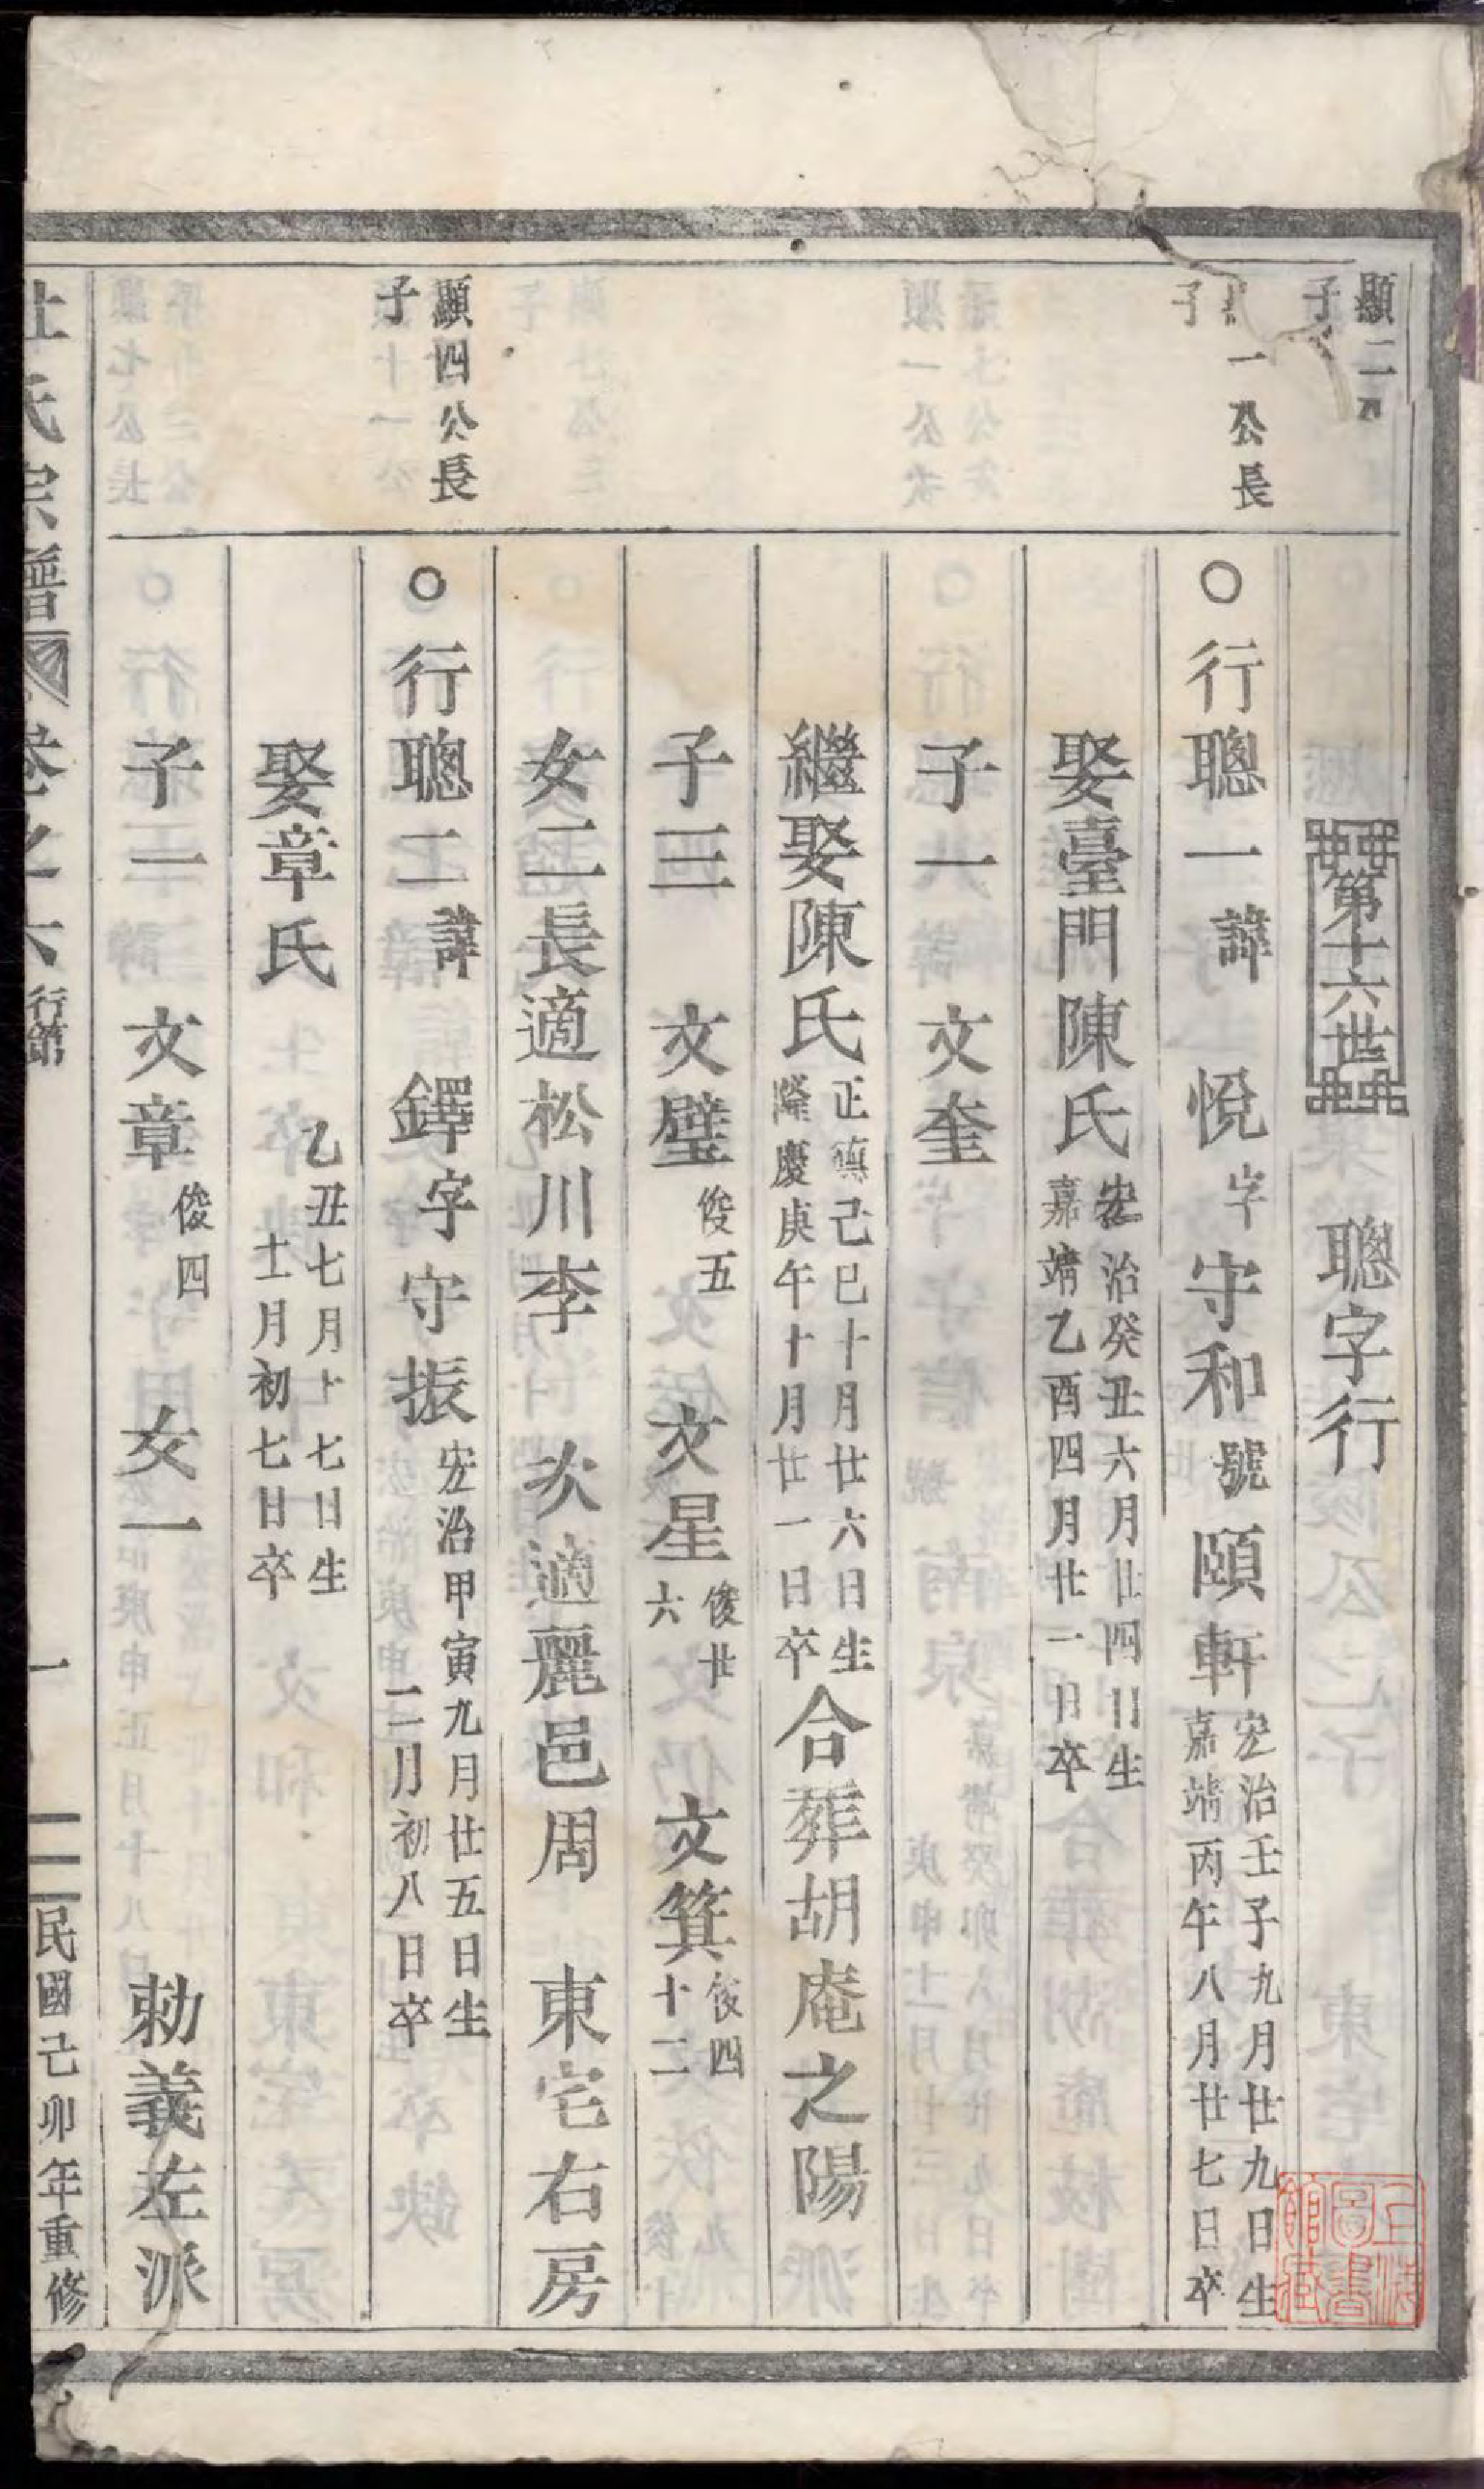 第十六世 聰字行
顯二
子
一公長
子
○行聰一諱悅字守和號頤軒宏治壬子九月廿九日生
嘉靖丙午八月廿七日卒
娶臺門陳氏宏治癸丑六月廿四日生
嘉靖乙酉四月廿一日卒
子一 文奎
繼娶陳氏正德己巳十月廿六日生
隆慶庚午十月廿一日卒
合葬胡庵之陽
子三 文璧俊五 文星俊廿六 文箕俊四十二
女二長適松川李 次適麗邑周 東宅右房
顯四公長
子
○行聰二諱鐸字守振宏治甲寅九月廿五日生
二月初八日卒
娶章氏 乙丑七月十七日生
十一月初七日卒
子一 文章俊四 女一 勅義左派
杜氏宗譜 卷之六 行第 一 民國己卯年重修
圖書館藏